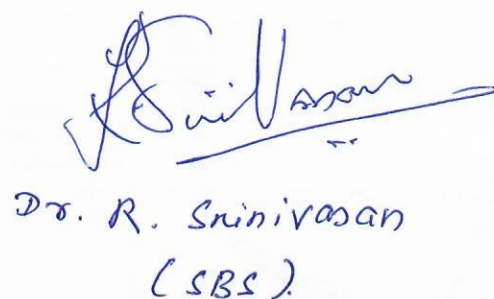 RSrinivasan
Dr. R. Srinivasan
(SBS).